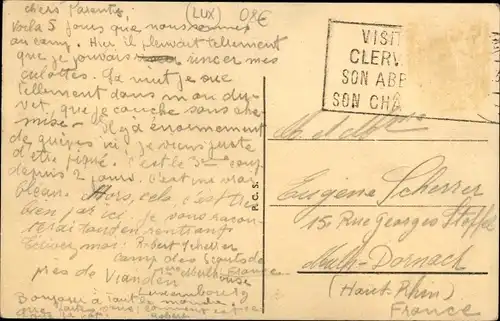 chers Parents,
Voila 5 jours que nous sommes
au camp. Hier il pleuvait tellement
que je pouvais rincer mes
culottes. La nuit je sue
tellement dans mon du-
vet, que je couche sans che-
mise. Il y a énormement
de guèpes ici je viens juste
d'être piqué. C'est le 3me coup
depuis 2 jours. C'est un vrai
fléau. Alors, cela, c'est très
bien par ici je vous racon-
terai tout en rentrant.
Ecivez moi: Robert Scherrer
camp des Scouts de
Mulhouse France
près de Vianden
Luxembourg
Bonjour à tout le monde
Robert
(LUX) 08€
P.C.S.
VISIT
CLERV
SON ABB
SON CHÂ
M. et Mme
Eugène Scherrer
15, Rue Georges Stoffel
Mulh-Dornach
(Haut-Rhin)
France